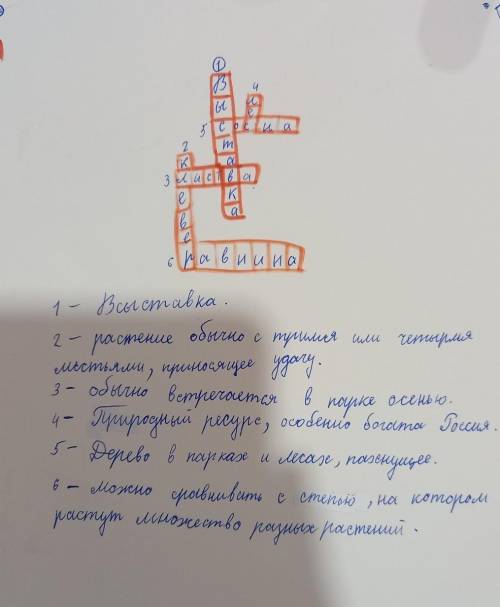 1
В
4
ы л
е
5 сосна
2 т
к а
3 листва
е к
в а
е
6 равнина
1 - Выставка.
2 - растение обычно с тримя или четырмя
листьями, приносящее удачу.
3 - обычно встречается в парке осенью.
4 - Природный ресурс, особенно богата Россия.
5 - Дерево в парках и лесах, пахнущее.
6 - можно сравнивать с степью, на котором
растут множество разных растений.